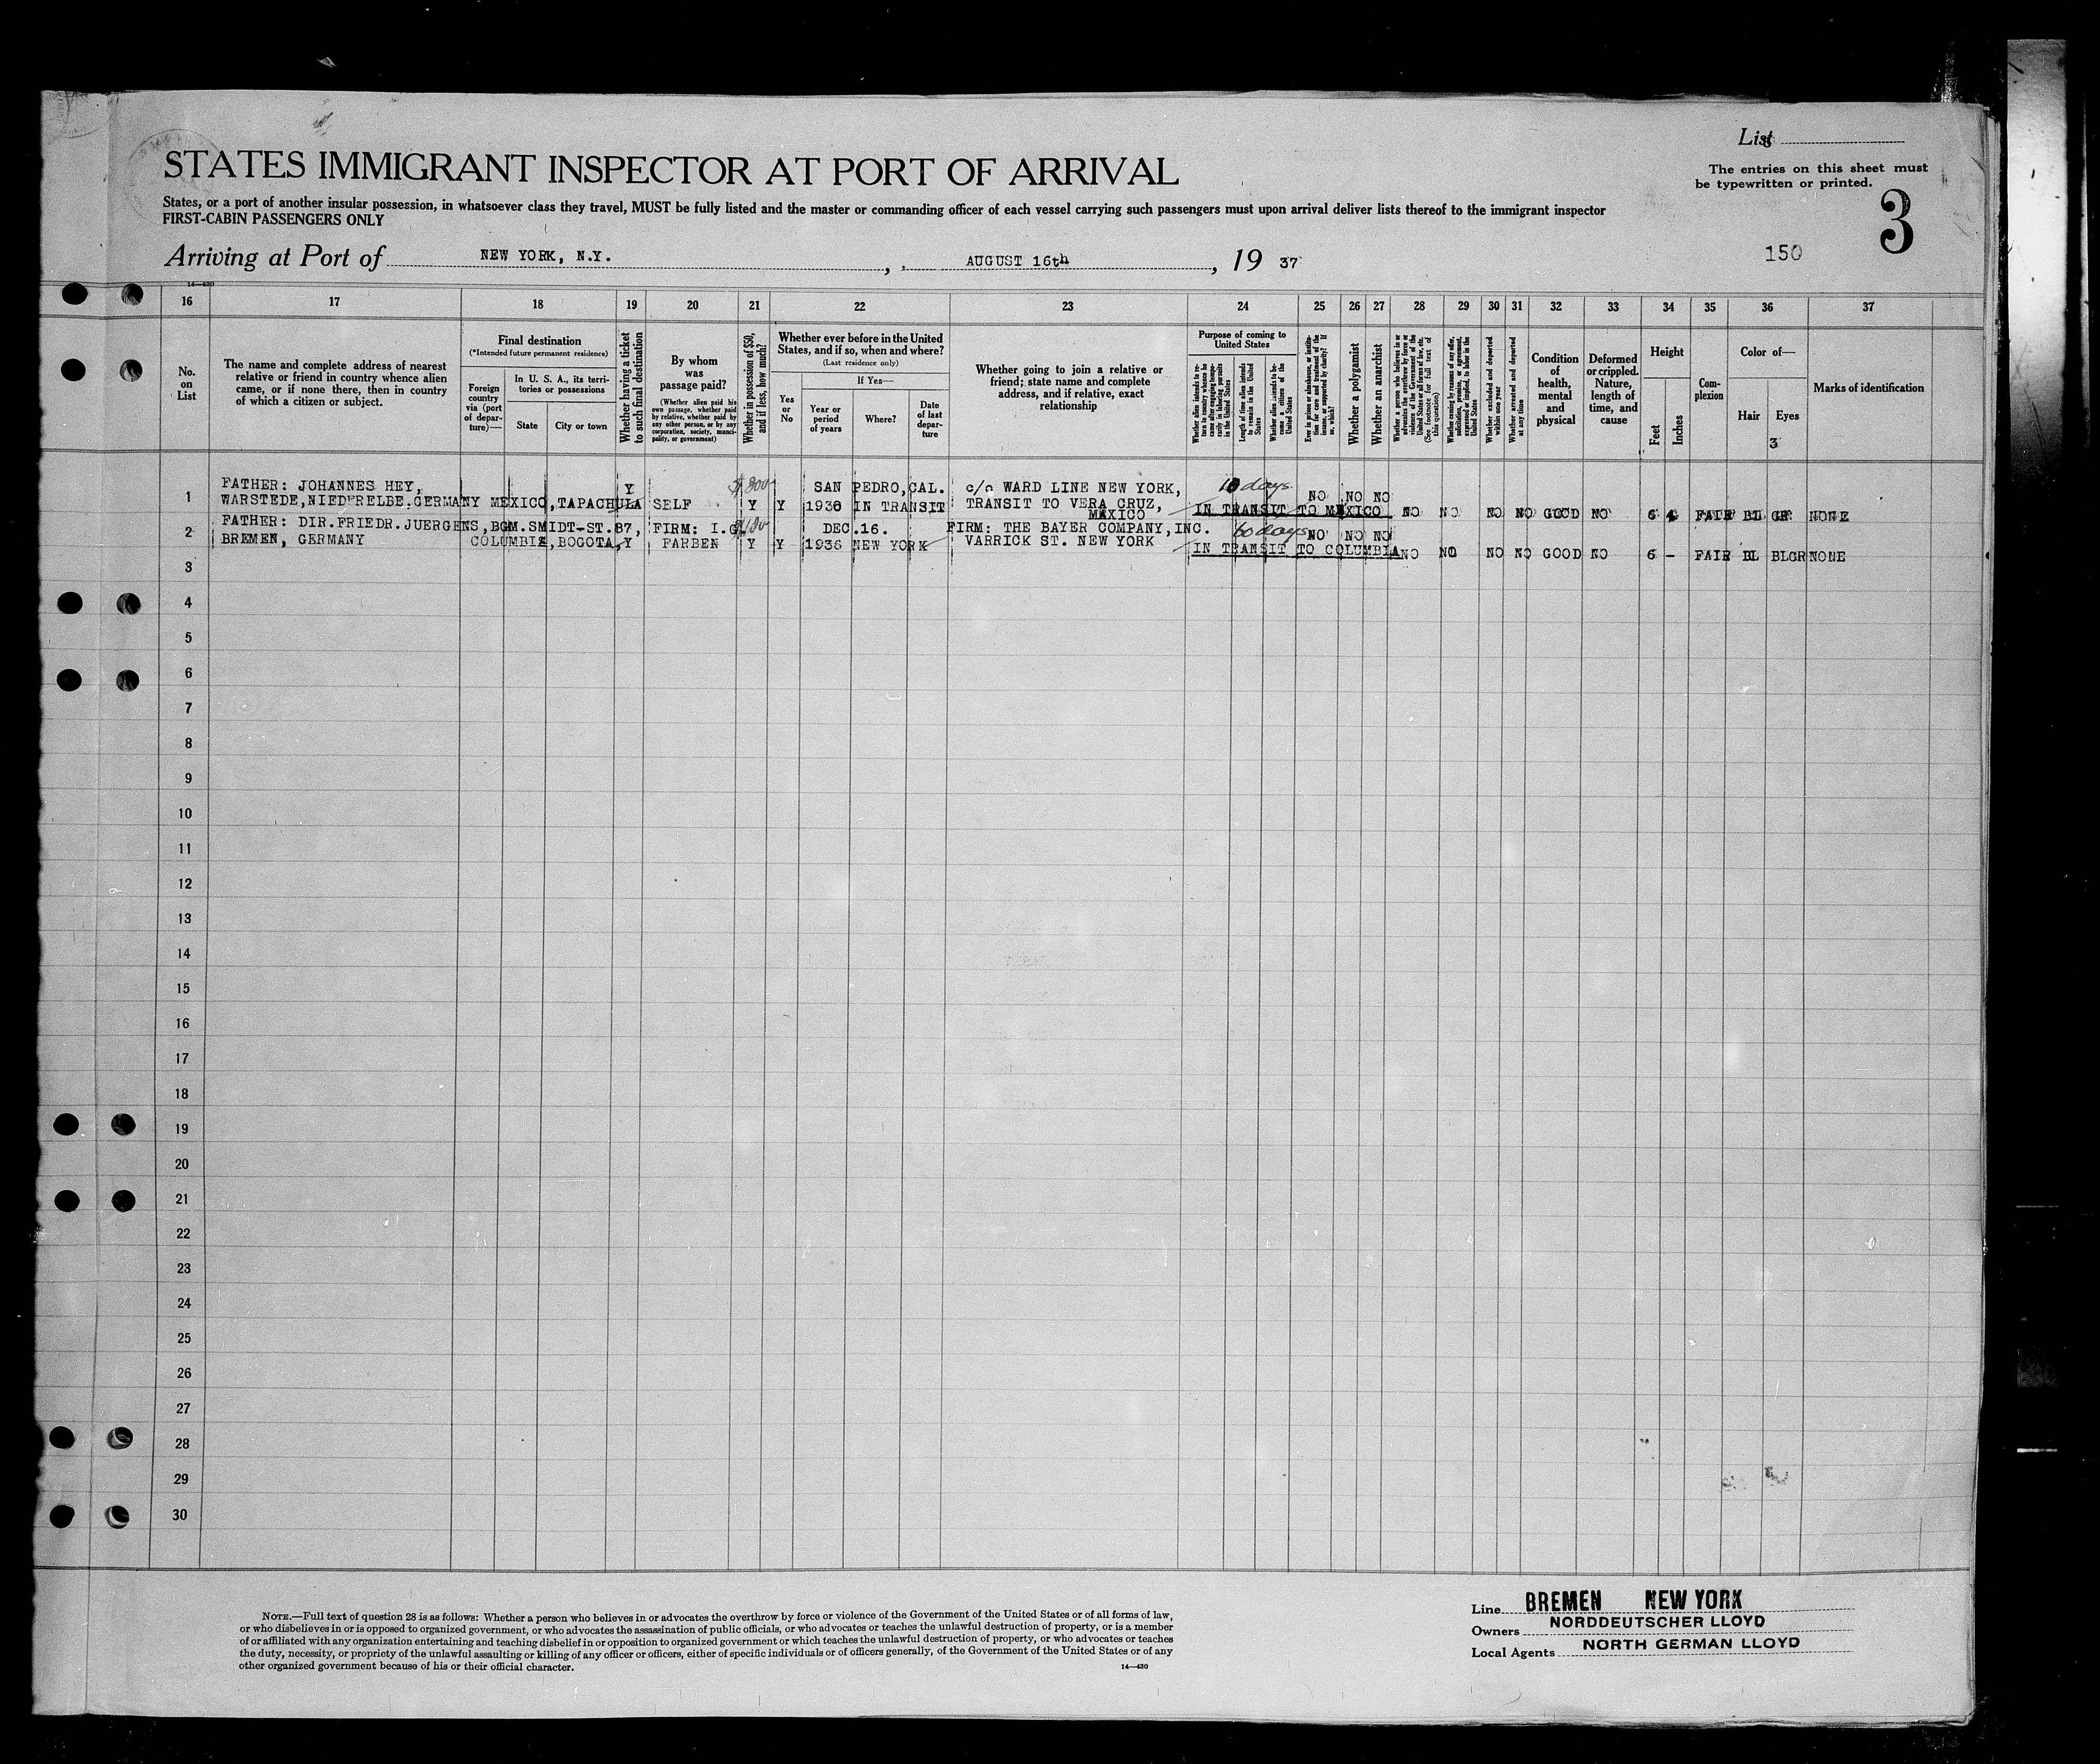 List 3
STATES IMMIGRANT INSPECTOR AT PORT OF ARRIVAL
The entries on this sheet must
be typewritten or printed.
States, or a port of another insular possession, in whatsoever class they travel, MUST be fully listed and the master or commanding officer of each vessel carrying such passengers must upon arrival deliver lists thereof to the immigrant inspector
FIRST-CABIN PASSENGERS ONLY
3
Arriving at Port of NEW YORK, N.Y. , AUGUST 16th , 19 37
150
14—430
16 17 18 19 20 21 22 23 24 25 26 27 28 29 30 31 32 33 34 35 36 37
No.
on
List
The name and complete address of nearest
relative or friend in country whence alien
came, or if none there, then in country
of which a citizen or subject.
Final destination
(*Intended future permanent residence)
Foreign
country
via (port
of depar-
ture)—
In U. S. A., its terri-
tories or possessions
State
City or town
Whether having a ticket
to such final destination
By whom
was
passage paid?
(Whether alien paid his
own passage, whether paid
by relative, whether paid by
any other person, or by any
corporation, society, munici-
pality, or government)
Whether in possession of $50,
and if less, how much?
Whether ever before in the United
States, and if so, when and where?
(Last residence only)
Yes
or
No
If Yes—
Year or
period
of years
Where?
Date
of last
depar-
ture
Whether going to join a relative or
friend; state name and complete
address, and if relative, exact
relationship
Purpose of coming to
United States
Whether alien intends to re-
turn to country whence he
came after engaging tempo-
rarily in laboring pursuits
in the United States
Length of time alien intends
to remain in the United
States
Whether alien intends to be-
come a citizen of the
United States
Ever in prison or almshouse, or institu-
tion for care and treatment of the
insane, or supported by charity? If
so, which?
Whether a polygamist
Whether an anarchist
Whether a person who believes in or
advocates the overthrow by force or
violence of the Government of the
United States or all forms of law, etc.
(See footnote for full text of
this question)
Whether coming by reasons of any offer,
solicitation, promise, or agreement,
expressed or implied, to labor in the
United States
Whether excluded and deported
within one year
Whether arrested and deported
at any time
Condition
of
health,
mental
and
physical
Deformed
or crippled.
Nature,
length of
time, and
cause
Height
Feet
Inches
Com-
plexion
Color of—
Hair
Eyes
3
Marks of identification
FATHER: JOHANNES HEY, Y $800 SAN PEDRO,CAL. c/o WARD LINE NEW YORK, 10 days NO NO NO
1 WARSTEDE,NIEDERELBE.GERMANY MEXICO,TAPACHULA SELF Y Y 1936 IN TRANSIT TRANSIT TO VERA CRUZ, IN TRANSIT TO MEXICO NO NO NO NO GOOD NO 6 4 FAIR BL GR NONE
MEXICO
FATHER: DIR.FRIEDR.JUERGENS,BGM.SMIDT-ST.87, FIRM: I.G. DEC.16. FIRM: THE BAYER COMPANY,INC. 60 days NO NO NO
2 BREMEN, GERMANY COLUMBIA,BOGOTA,Y FARBEN Y Y 1936 NEW YORK VARRICK ST. NEW YORK IN TRANSIT TO COLUMBIA NO NO NO NO GOOD NO 6 - FAIR BL BLGR NONE
3
4
5
6
7
8
9
10
11
12
13
14
15
16
17
18
19
20
21
22
23
24
25
26
27
28
29
30
NOTE.—Full text of question 28 is as follows: Whether a person who believes in or advocates the overthrow by force or violence of the Government of the United States or of all forms of law,
or who disbelieves in or is opposed to organized government, or who advocates the assassination of public officials, or who advocates or teaches the unlawful destruction of property, or is a member
of or affiliated with any organization entertaining and teaching disbelief in or opposition to organized government or which teaches the unlawful destruction of property, or who advocates or teaches
the duty, necessity, or propriety of the unlawful assaulting or killing of any officer or officers, either of specific individuals or of officers generally, of the Government of the United States or of any
other organized government because of his or their official character.
14—430
Line BREMEN NEW YORK
Owners NORDDEUTSCHER LLOYD
Local Agents NORTH GERMAN LLOYD